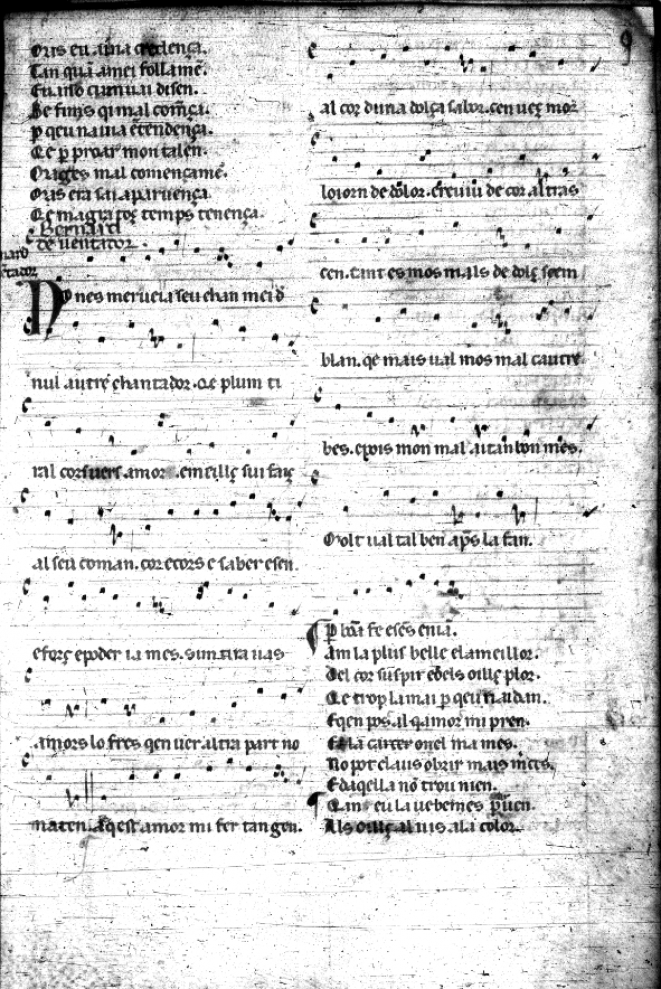 Oris eu auia credença.
Tan quā amei follamē.
Eu uiso cum uai disen.
Se finis qi mal com̄ça.
p̱ qeu naiua etendença.
Qe p̱ proar mon talen.
Origes mal començamē.
Oris era sai aparuença
Qe magra toz temps tenença.
Bernard
de uentador.
Nones merueia seu chan mei d
nul autre chantador. Qe plum ti
ral cors uers amor. emeillz sui faiz
al seu coman. cor ecors e saber esen.
eforz epoder ia mes. sim tira uas
amors lo fres qen uer altra part no
maten. Aqest amor mi fer tan gen.
9
al cor duna dolça sabor. cen uez mor
lo iorn de dolor. ereuiu de cor altras
cen. tant es mos mals de dolz sem
blan. qe mais ual mos mal cautre
bes. epois mon mal aitan bon mes.
Molt ual tal ben ap̄s la fan.
p̱ bōa fe esēs eniā.
Am la plus belle elameillor.
del cor suspir edels oillz plor.
Qe trop lam ai p̱ qeu naidan.
Eqen pos. al qamor mi pren.
Ella carcer onel ma mes.
No pot claus obrir mais merces.
Edaqella nō trou nien.
Cant eu la ue bemes paruen.
Als oillz al uis. ala color.